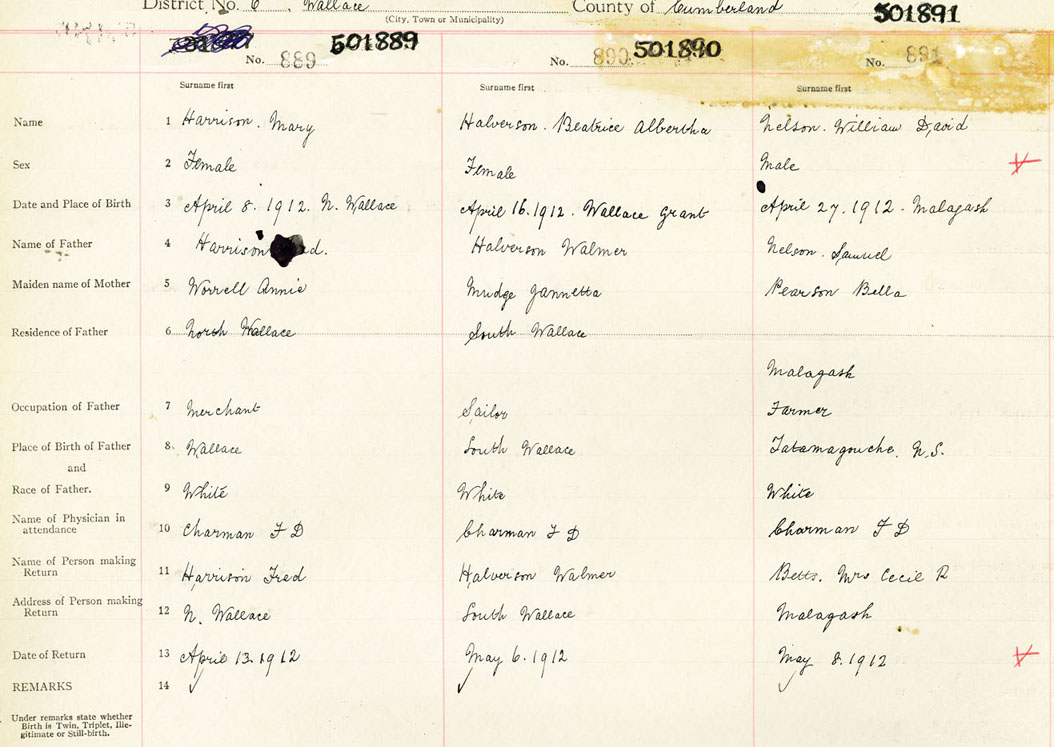 District No. 6 Wallace County of Cumberland
(City, Town or Municipality)
501891
501889 501890
No. 889 No. 890 No. 891
Surname first Surname first Surname first
Name 1 Harrison. Mary Halverson. Beatrice Albertha Nelson. William David
Sex 2 Female Female Male
Date and Place of Birth 3 April 8. 1912. N. Wallace April 16. 1912. Wallace Grant April 27. 1912. Malagash
Name of Father 4 Harrison Halverson Walmer Nelson. Samuel
Maiden name of Mother 5 Worrell Annie Mudge Jannetta Pearson Bella
Residence of Father 6 North Wallace South Wallace
Malagash
Occupation of Father 7 Merchant Sailor Farmer
Place of Birth of Father 8 Wallace South Wallace Tatamagouche. N.S.
and
Race of Father. 9 White White White
Name of Physician in
attendance 10 Charman F D Charman F D Charman F D
Name of Person making
Return 11 Harrison Fred Halverson Walmer Betts. Mrs Cecil R
Address of Person making
Return 12 N. Wallace South Wallace Malagash
Date of Return 13 April 13. 1912 May 6. 1912 May 8. 1912
REMARKS 14
Under remarks state whether
Birth is Twin, Triplet, Ille-
gitimate or Still-birth.